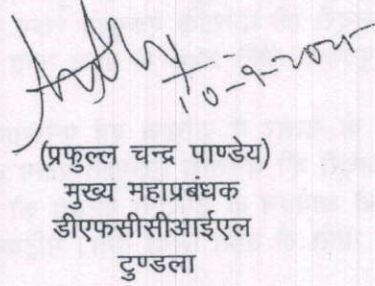 10-9-2025
(प्रफुल्ल चन्द्र पाण्डेय)
मुख्य महाप्रबंधक
डीएफसीसीआईएल
टुण्डला